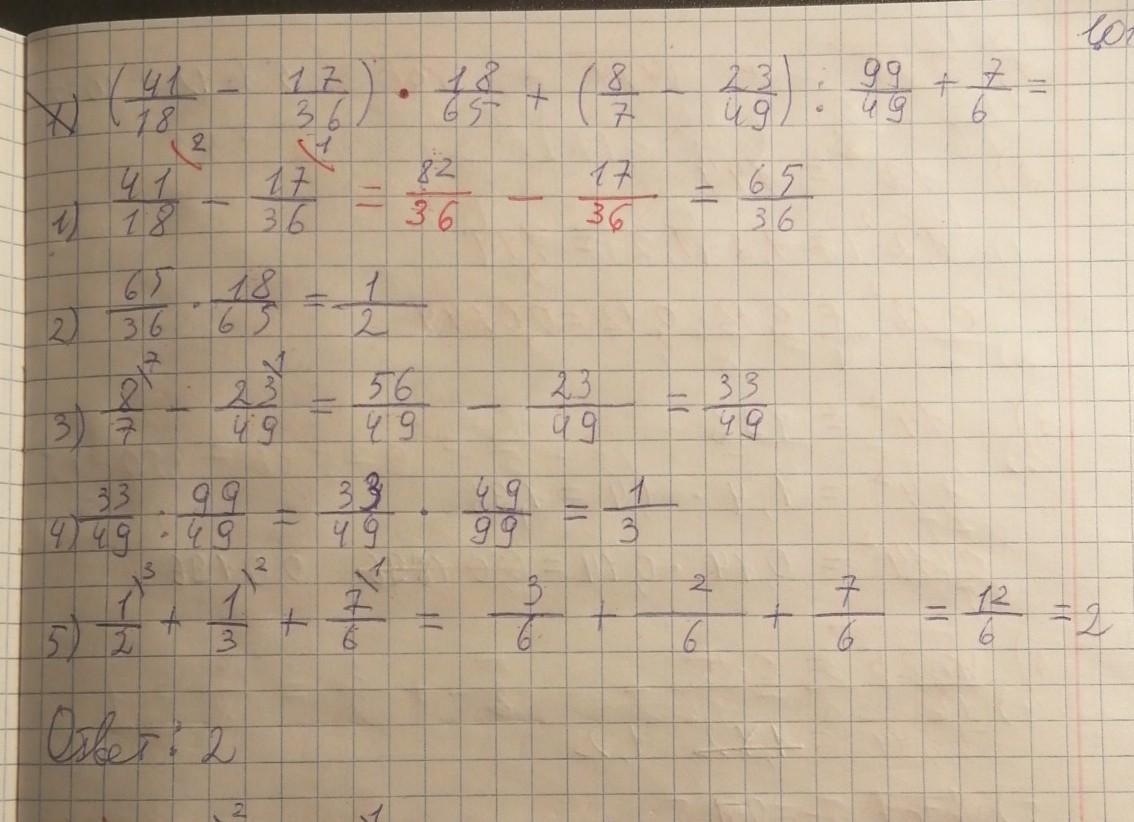 10
1) (41/18 - 17/36) · 18/65 + (8/7 - 23/49) : 99/49 + 7/6 =
1) 41/18 \2 - 17/36 \1 = 82/36 - 17/36 = 65/36
2) 65/36 · 18/65 = 1/2
3) 8/7 \7 - 23/49 \1 = 56/49 - 23/49 = 33/49
4) 33/49 : 99/49 = 33/49 · 49/99 = 1/3
5) 1/2 \3 + 1/3 \2 + 7/6 \1 = 3/6 + 2/6 + 7/6 = 12/6 = 2
Ответ: 2
2 1